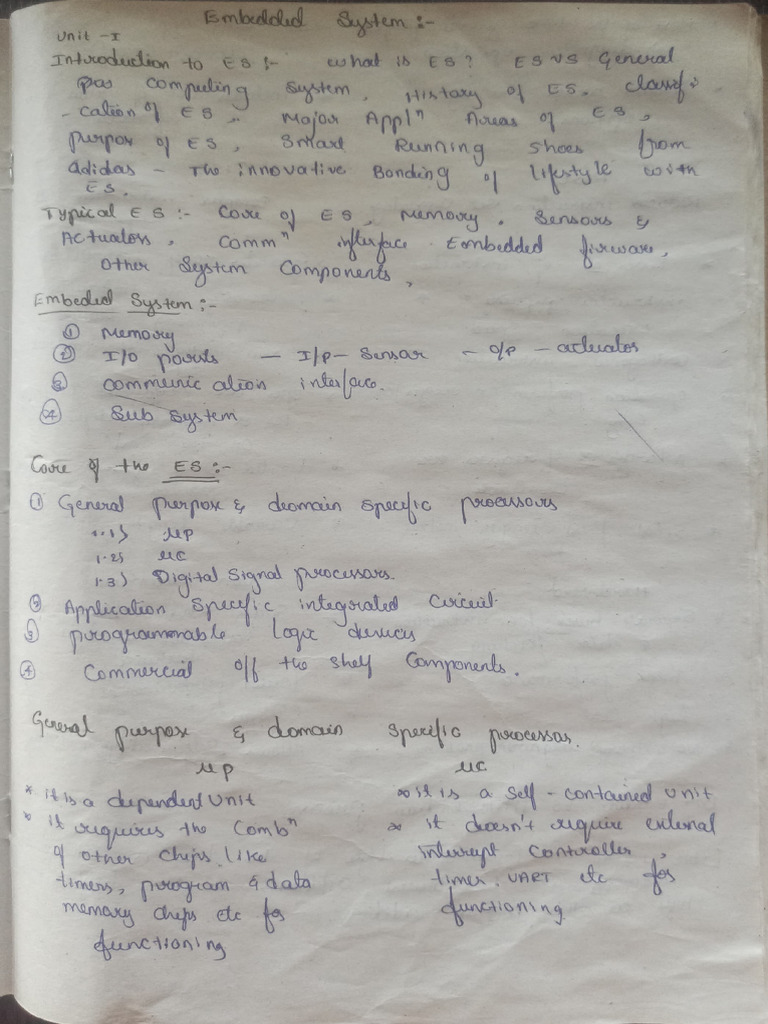 Embedded System :-
Unit - I
Introduction to ES :- What is ES? ES VS General
pas computing system, History of ES. classifi
- cation of ES, Major Applⁿ Areas of ES,
purpox of ES, Smart Running shoes from
Adidas - The innovative Bonding of lifestyle with
ES.
Typical ES :- Core of ES, Memory, Sensors &
Actuators, Commⁿ interface Embedded firware,
Other System Components,
Embeded System :-
① Memory
② I/O poorts - I/p - Sensar - O/p - actuator
③ communication interface.
④ Sub System
Core of the ES :-
① General purpox & domain specific processors
1.1) μp
1.2) μc
1.3) Digital Signal processors.
② Application Specific integrated Circuit
③ programmable logic devices
④ Commercial off the shelf Components.
General purpox & domain specific processor.
μp μc
* it is a dependent unit
* it requires the Combⁿ
of other chips like
timers, program & data
memory chips etc for
functioning
* it is a self-contained unit
* it doesn't require external
interrupt controller,
timer, UART etc for
functioning